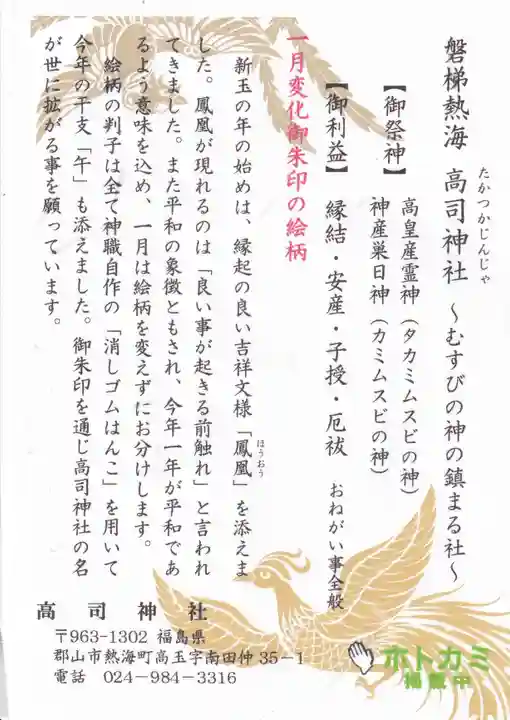 磐梯熱海 高司神社 ～むすびの神の鎮まる社～
たかつかじんじゃ
【御祭神】 高皇産霊神（タカミムスビの神）
神産巣日神（カミムスビの神）
【御利益】 縁結・安産・子授・厄祓 おねがい事全般
一月変化御朱印の絵柄
新玉の年の始めは、縁起の良い吉祥文様「鳳凰」を添えま
ほうおう
した。鳳凰が現れるのは「良い事が起きる前触れ」と言われ
てきました。また平和の象徴ともされ、今年一年が平和であ
るよう意味を込め、一月は絵柄を変えずにお分けします。
絵柄の判子は全て神職自作の「消しゴムはんこ」を用いて
今年の干支「午」も添えました。御朱印を通じ高司神社の名
が世に拡がる事を願っています。
高司神社
〒963－1302 福島県
郡山市熱海町高玉字南田仲35－1
電話 024－984－3316
ホトカミ
掲載中